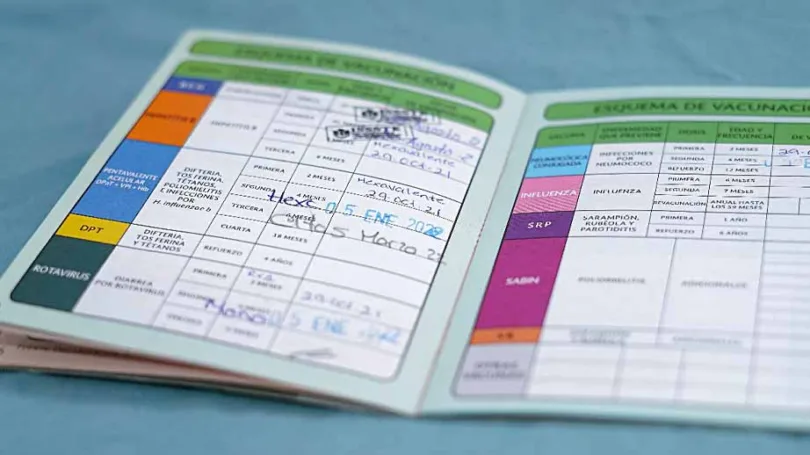 ESQUEMA DE VACUNACIÓN
HEPATITIS B
HEPATITIS B
SEGUNDA
TERCERA
6 MESES
Hexavalente
29.Oct.21
PENTAVALENTE
ACELULAR
DPaT + VPI + Hib
DIFTERIA,
TOS FERINA,
TÉTANOS,
POLIOMIELITIS
E INFECCIONES
POR
H. influenzae b
PRIMERA
2 MESES
Hexavalente
29.Oct.21
SEGUNDO
4 MESES
Hexa
05 ENE 2022
TERCERA
6 MESES
5 Marzo 22
CUARTA
18 MESES
DPT
DIFTERIA,
TOS FERINA
Y TÉTANOS
REFUERZO
4 AÑOS
ROTAVIRUS
DIARREA
POR ROTAVIRUS
PRIMERA
2 MESES
29.Oct.21
SEGUNDA
05 ENE
TERCERA
ESQUEMA DE VACUNACI
VACUNA
ENFERMEDAD
QUE PREVIENE
DOSIS
EDAD Y
FRECUENCIA
NEUMOCÓCICA
CONJUGADA
INFECCIONES
POR
NEUMOCOCO
PRIMERA
2 MESES
SEGUNDA
4 MESES
REFUERZO
12 MESES
INFLUENZA
INFLUENZA
PRIMERA
6 MESES
SEGUNDA
7 MESES
REVACUNACIÓN
ANUAL HASTA
LOS 59 MESES
SRP
SARAMPIÓN,
RUBÉOLA Y
PAROTIDITIS
PRIMERA
1 AÑO
REFUERZO
6 AÑOS
SABIN
POLIOMIELITIS
ADICIONALES